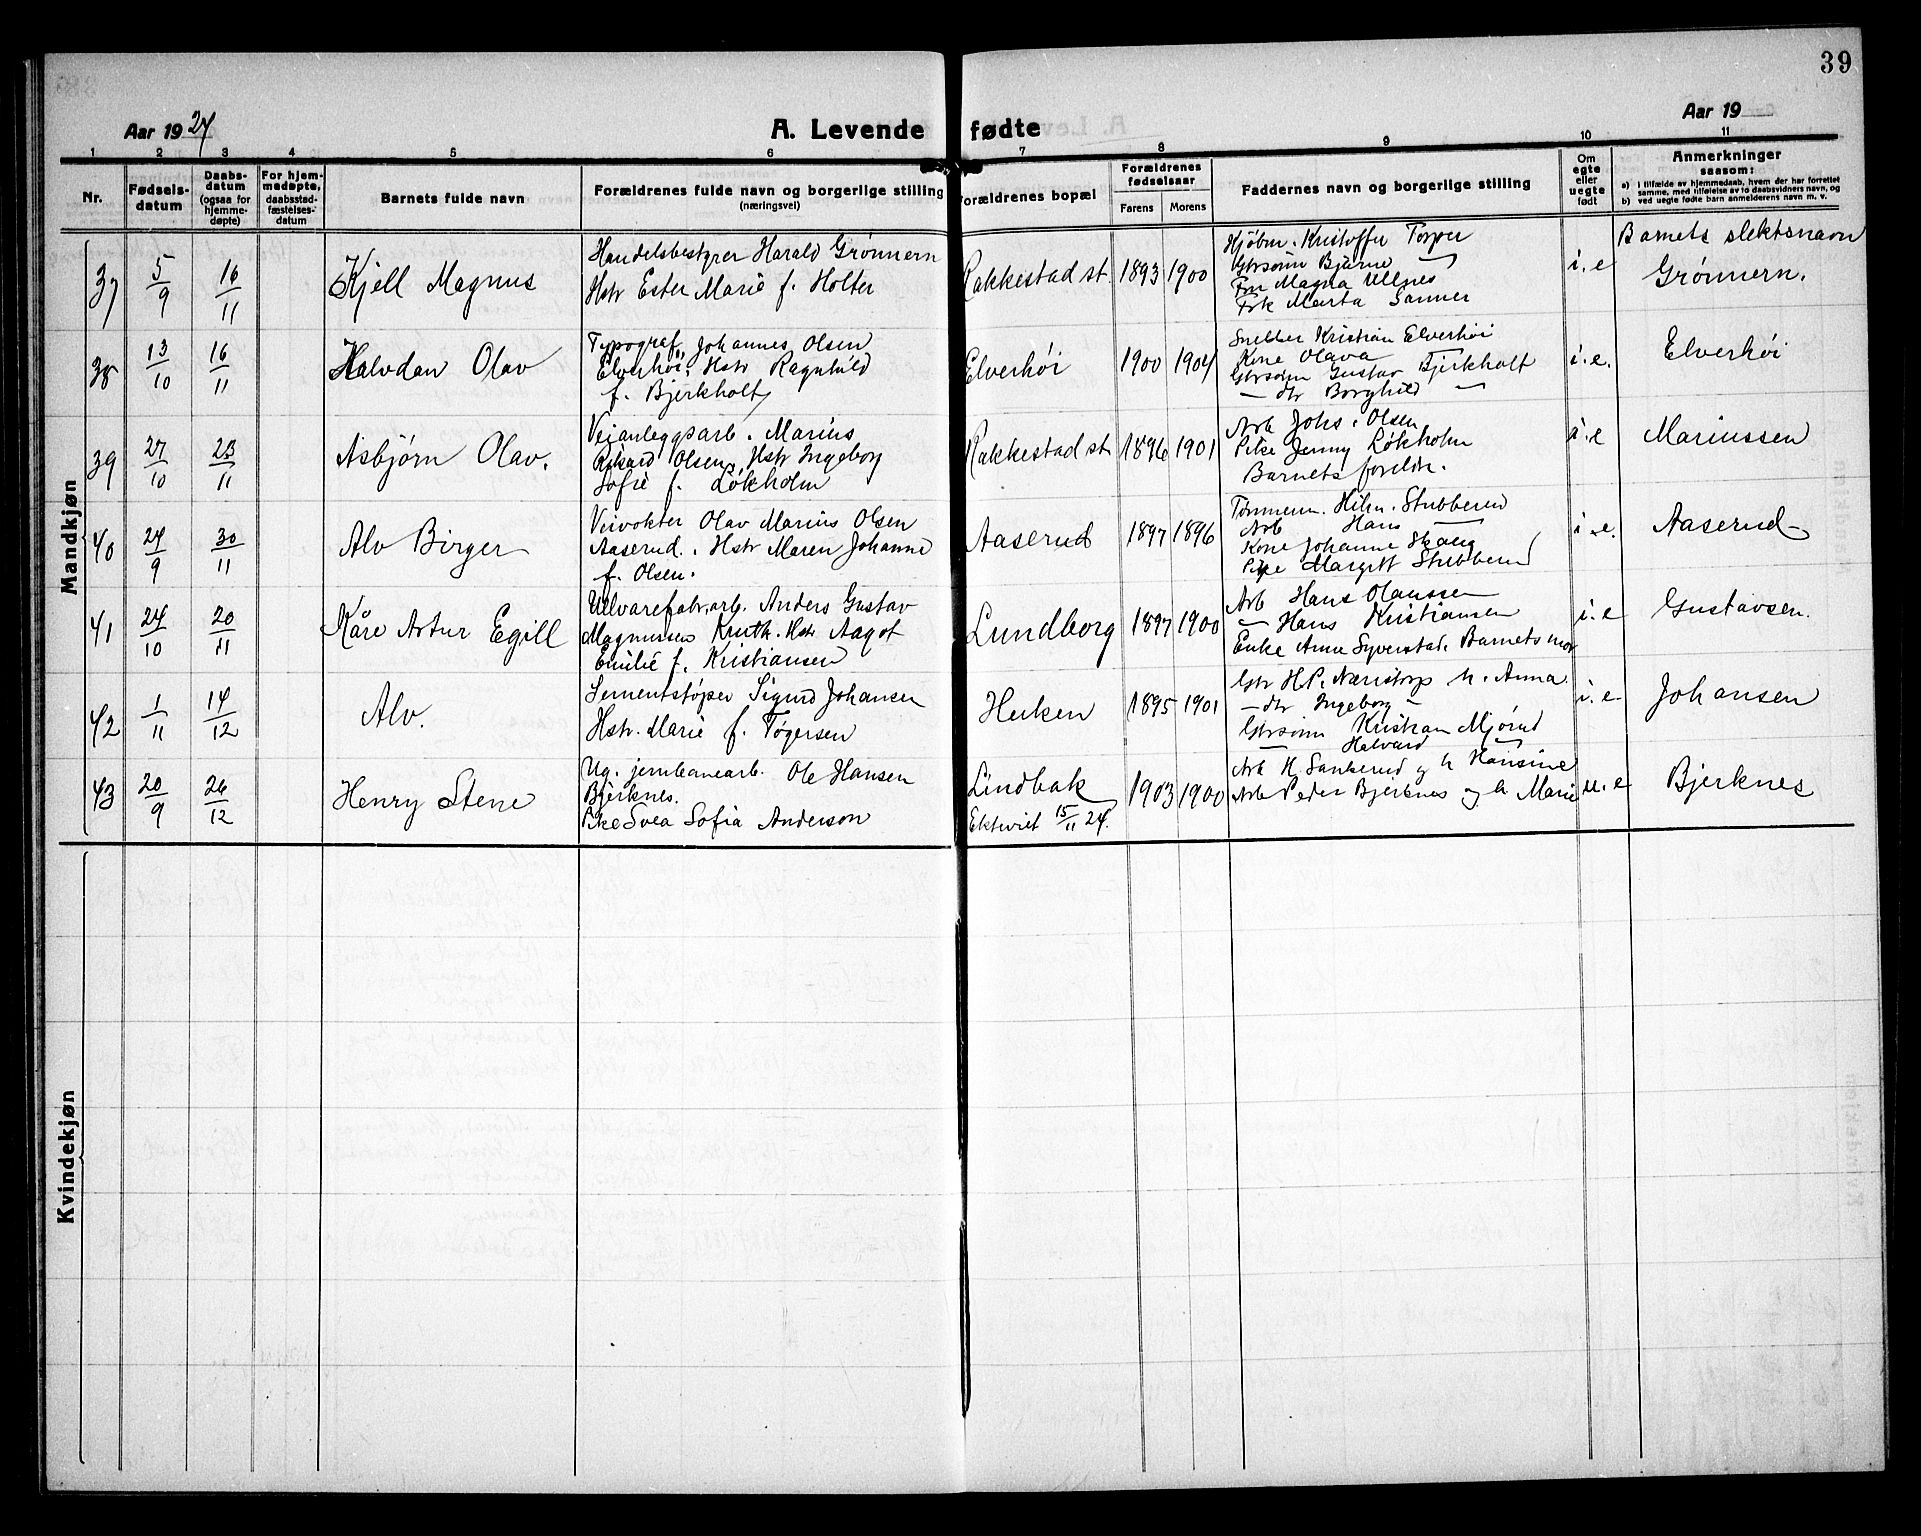 39
Aar 1924
A. Levende fødte
Aar 19
1 2 3 4 5 6 7 8 9 10 11
Nr.
Fødsels-
datum
Daabs-
datum
(ogsaa for
hjemme-
døpte)
For hjem-
medøpte,
daabsstad-
fæstelses-
datum
Barnets fulde navn
Forældrenes fulde navn og borgerlige stilling
(næringsvei)
Forældrenes bopæl
Forældrenes
fødselsaar
Farens Morens
Faddernes navn og borgerlige stilling
Om
egte
eller
uegte
født
Anmerkninger
saasom:
a) i tilfælde av hjemmedaab, hvem der har forrettet
samme, med tilføielse av to daabsvidners navn, og
b) ved uegte fødte barn anmelderens navn m. v.
Mandkjøn
37
5/9
16/11
Kjell Magnus
Handelsbestyrer Harald Grønnern
Hstr Ester Marie f. Holter
Rakkestad st.
1893 1900
Kjøbm. Kristoffer Torper
Gbrsønn Bjarne —
Fru Magna Ullnes
Frk Marta Sanner
i. e
Barnets slektsnavn
Grønnern.
38
13/10
16/11
Halvdan Olav
Typograf Johannes Olsen
Elverhöi, Hstr Ragnhild
f. Bjerkholt
Elverhöi
1900 1904
Snekker Kristian Elverhöi
Kone Olava —
Gbrsønn Gustav Bjerkholt
— dtr Borghild —
i. e.
Elverhöi
39
27/10
23/11
Asbjørn Olav.
Veianleggsarb. Marius
Rikard Olsen, Hstr Ingeborg
Sofie f. Løkholm
Rakkestad st
1896 1901
Arb Johs. Olsen
Pike Jenny Løkholm
Barnets foreldre.
i. e
Mariussen
40
24/9
30/11
Alv Birger
Veivokter Olav Marius Olsen
Aaserud. Hstr Maren Johanne
f. Olsen.
Aaserud
1897 1896
Tømmerm. Hilm. Stubberud
Arb Hans —
Kone Johanne Skaug
Pike Margit Stubberud
i. e.
Aaserud
41
24/10
20/11
Kåre Artur Egill
Uldvarefabr.arb. Anders Gustav
Magnussen Knuth. Hstr Aagot
Emilie f. Kristiansen
Lundborg
1897 1900
Arb Hans Olaussen
— Hans Kristiansen
Enke Anne Syverstad. Barnets mor
i. e
Gustavsen.
42
1/11
14/12
Alv.
Sementstøper Sigurd Johansen
Hstr. Marie f. Tøgersen
Heiken
1895 1901
Gbr H.P. Nærstorp h. Anna
— dtr Ingeborg —
Gbrsønn Kristian Mjørud
— Halvard —
i. e
Johansen
43
20/9
26/12
Henry Stene
Ug. jernbanearb. Ole Hansen
Bjerknes.
Pike Svea Sofia Anderson
Lindbak
Ektviet 15/11 24.
1903 1900
Arb H. Sankerud og h Hansine
Arb Peder Bjerknes og h. Marie
u. e
Bjerknes
Kvindekjøn